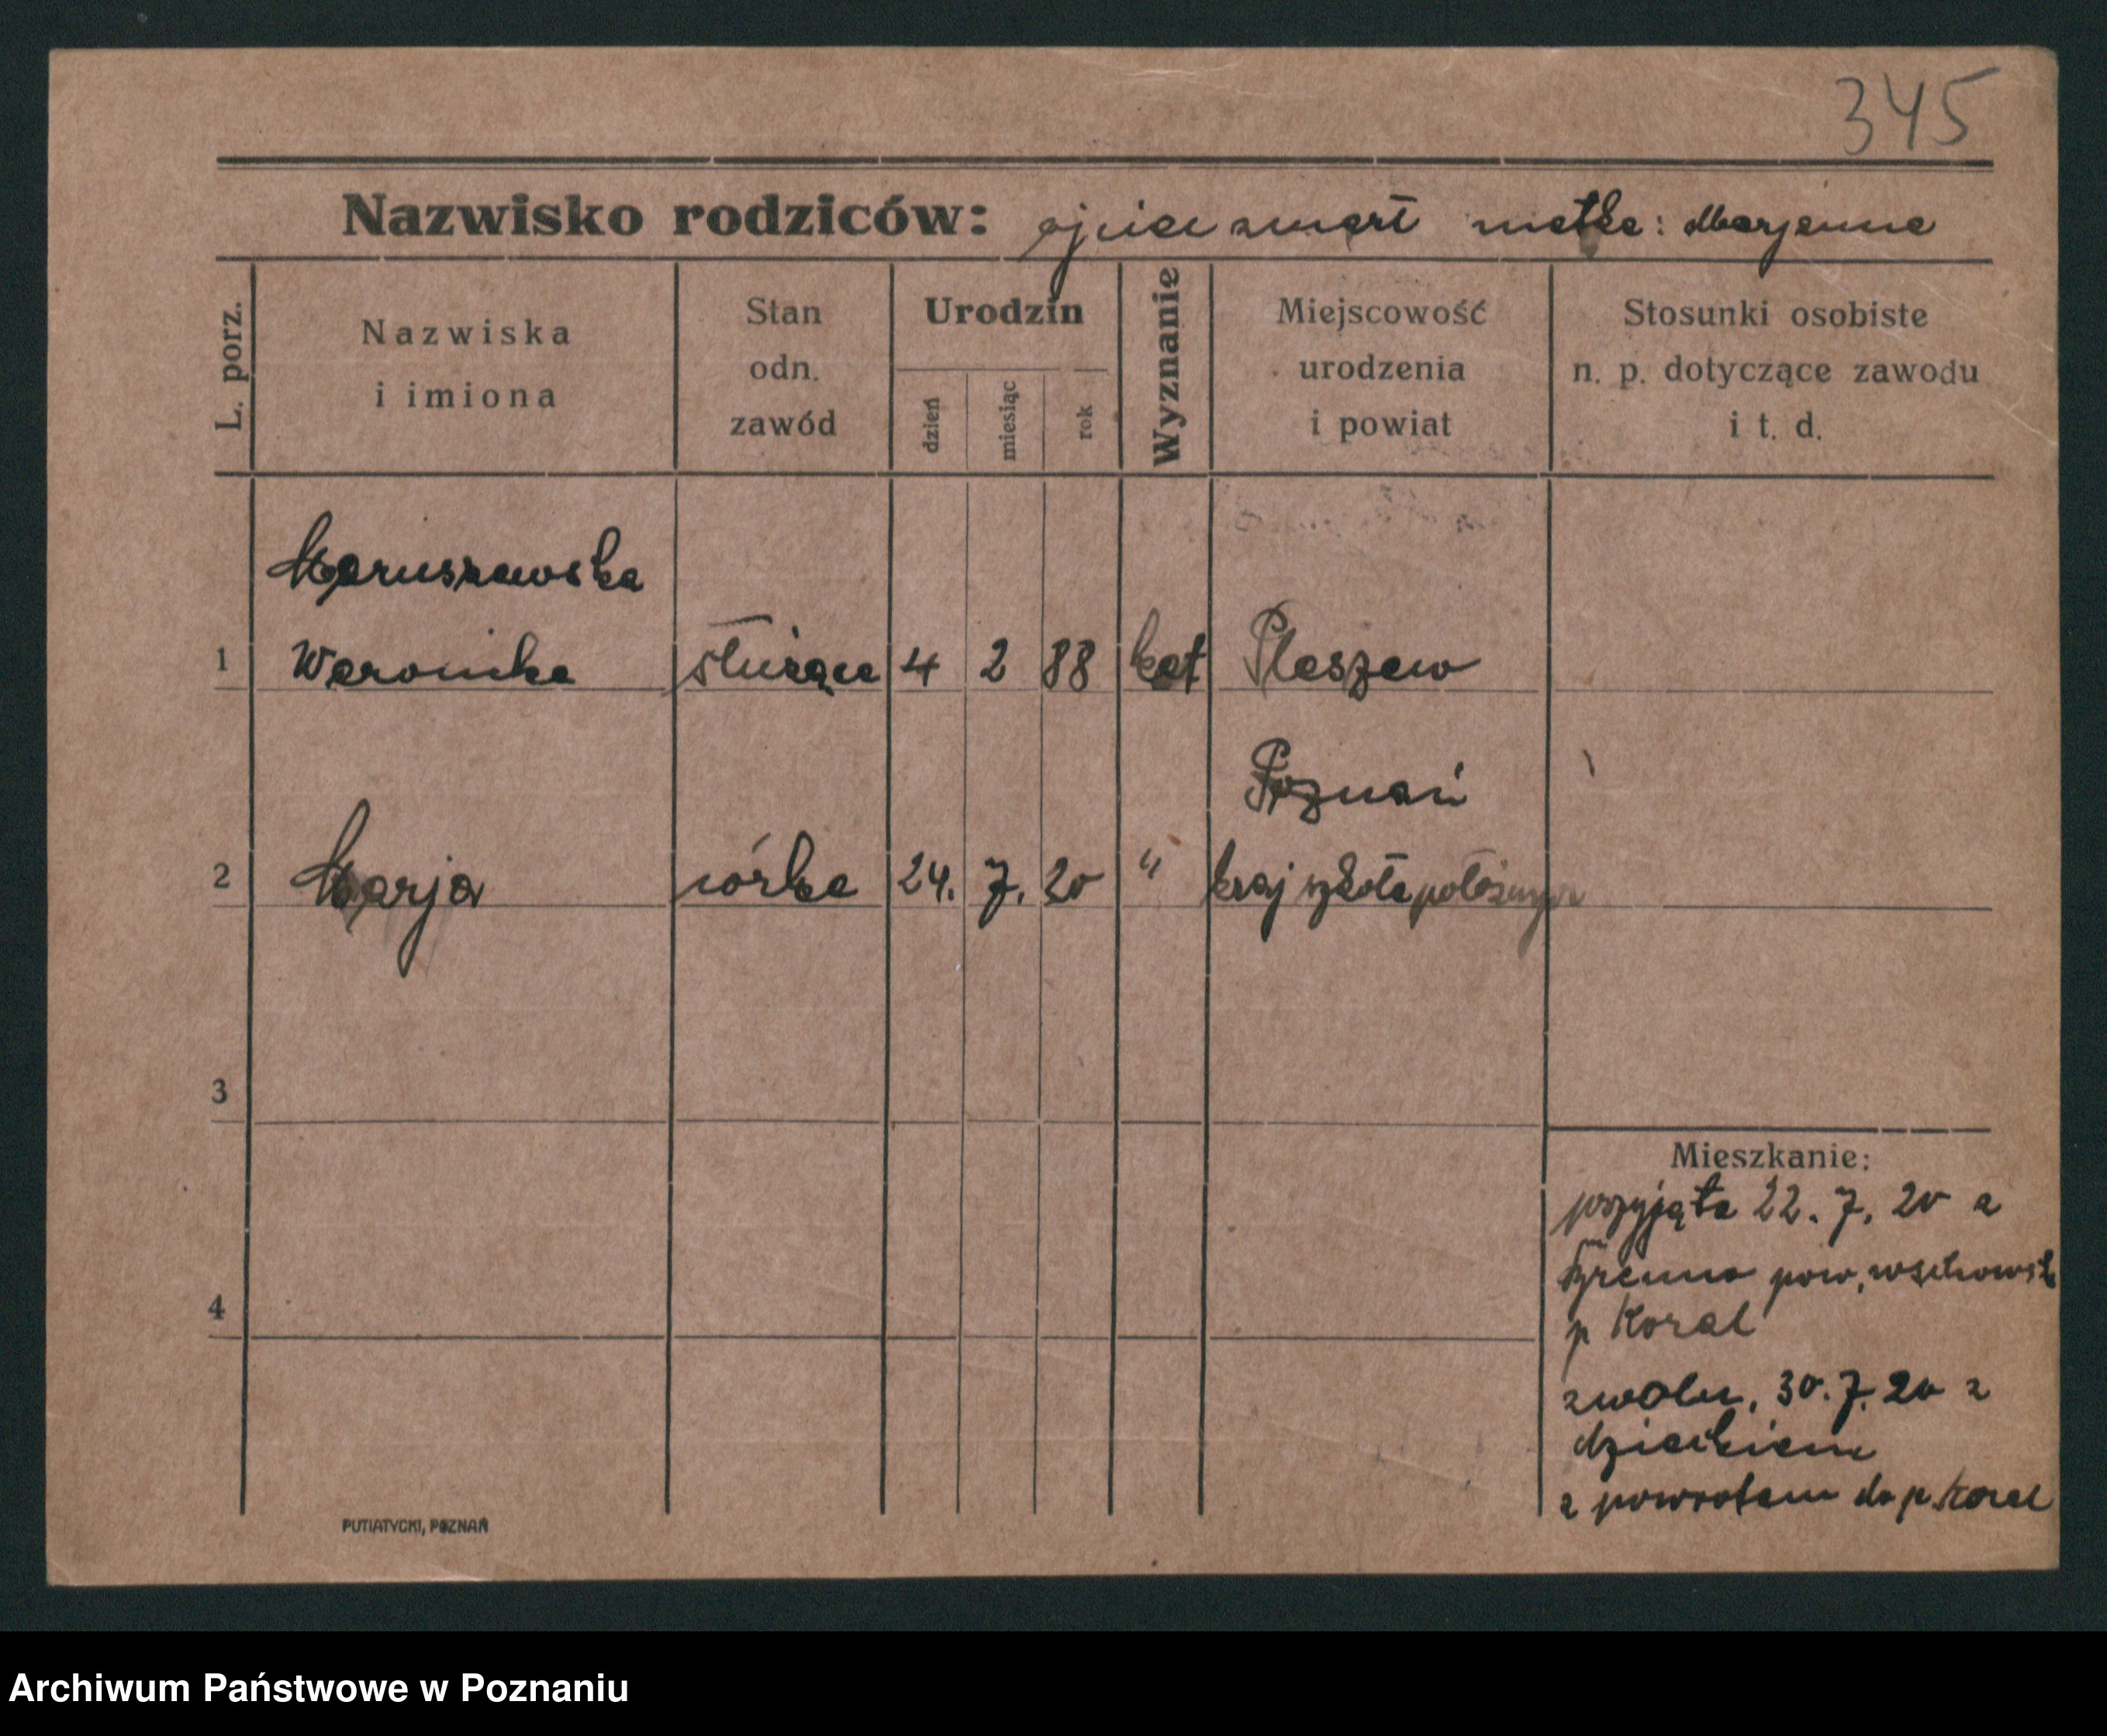 345
Nazwisko rodziców: ojciec zmarł matka: Marjanna
L. porz.
Nazwiska
i imiona
Stan
odn.
zawód
Urodzin
dzień
miesiąc
rok
Wyznanie
Miejscowość
urodzenia
i powiat
Stosunki osobiste
n. p. dotyczące zawodu
i t. d.
Maruszewska
1 Weronika służąca 4 2 88 kat Pleszew
Poznań
2 Marja córka 24. 7. 20 " kraj szkoła położnych
3
4
Mieszkanie:
przyjęta 22. 7. 20 z
pow. wschowsk
p Koral
zwoln. 30. 7. 20 z
dzieckiem
z powrotem do p. Koral
PUTIATYCKI, POZNAŃ
Archiwum Państwowe w Poznaniu